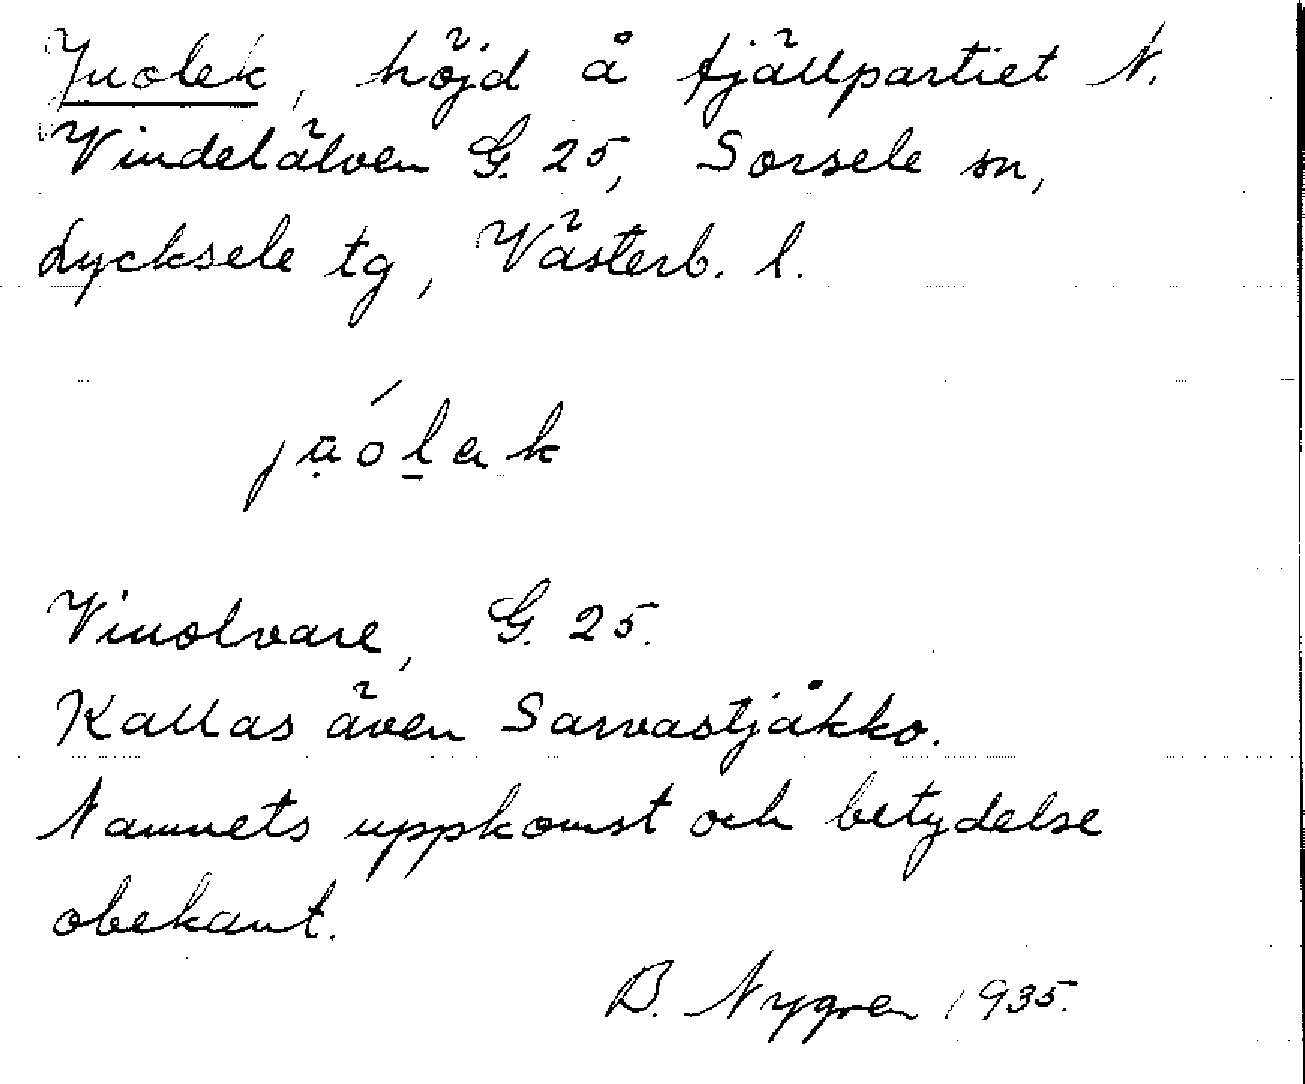 Juolek, höjd å fjällpartiet N.
Vindelälven G. 25, Sorsele sn,
Lycksele tg, Västerb. l.
jạólak
Vinolvare, G. 25.
Kallas även Sarvastjåkko.
Namnets uppkomst och betydelse
obekant.
B. Nygren 1935.